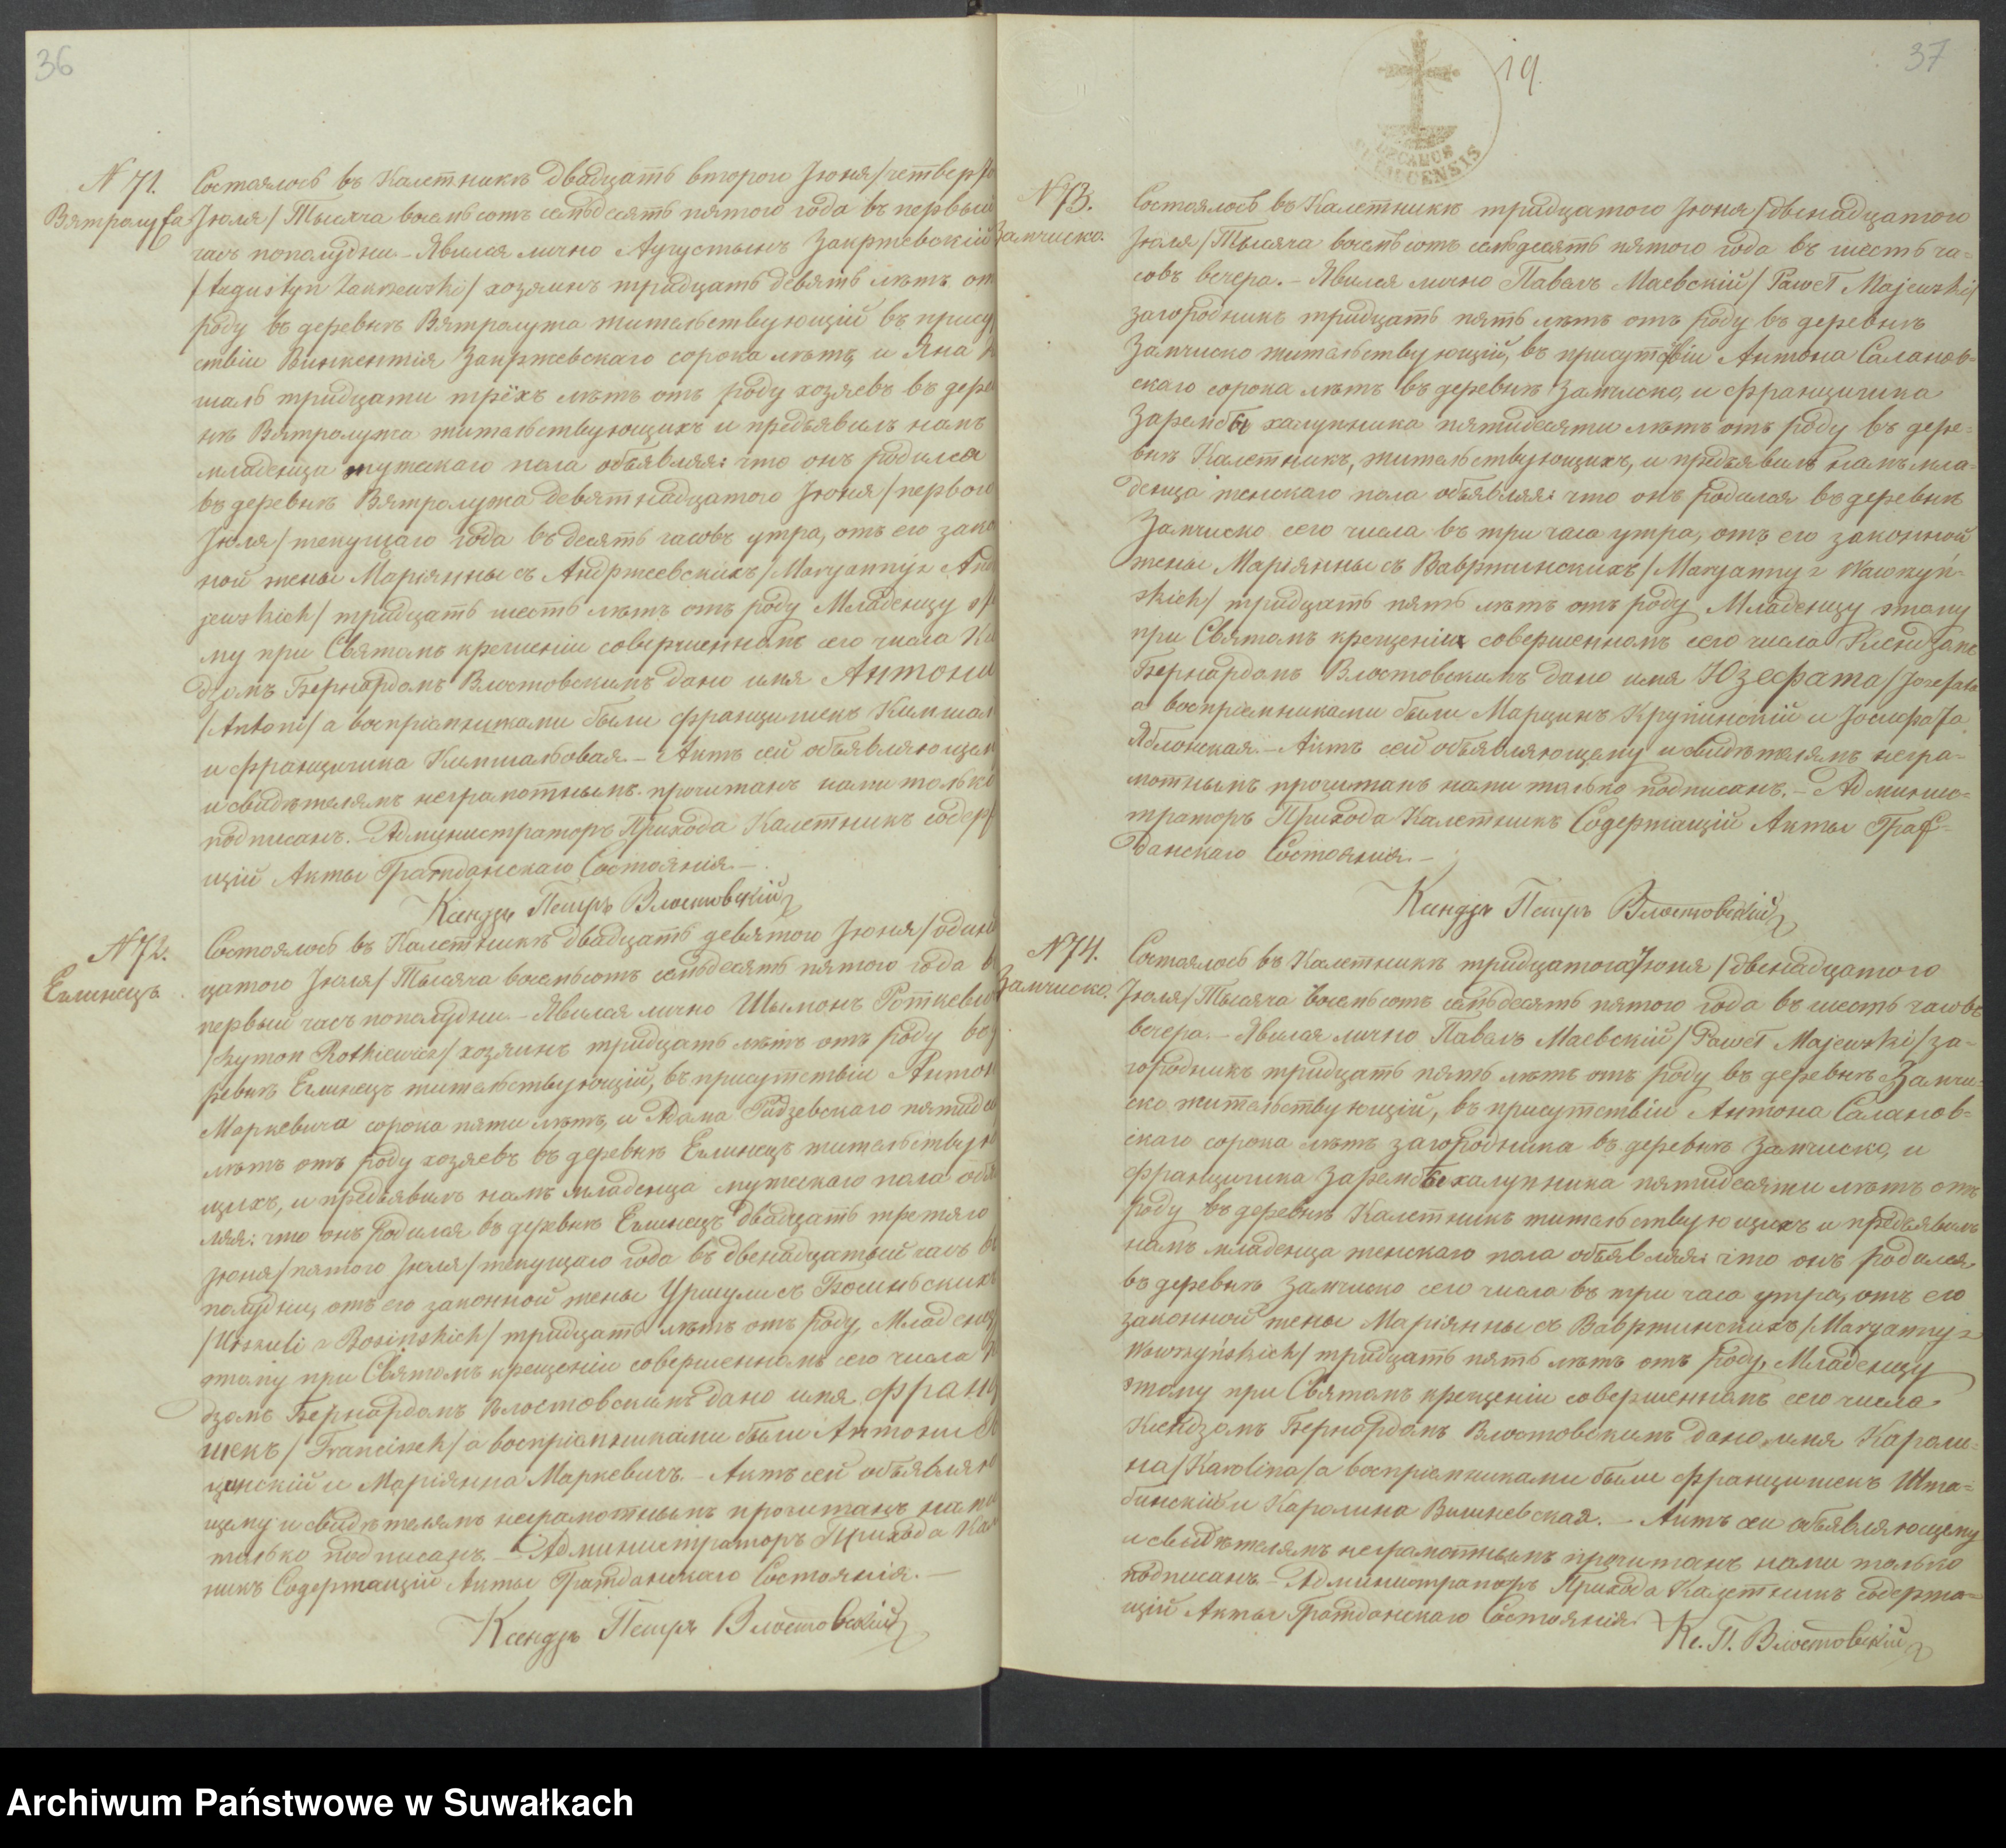 36
N 71.
Вятролужа
Состоялось въ Калетникѣ двадцать второго Іюня/четвер
Іюля/ Тысяча восемьсотъ семьдесятъ пятого года въ первый
часъ пополудни – Явился лично Аугустынъ Закржевскій
/Augustyn Zakrzewski/ хозяинъ тридцать девять лѣтъ от
роду въ деревнѣ Вятролужа жительствующій въ присут
ствіи Винкентія Закржевскаго сорока лѣтъ, и Яна
шаль тридцати трёхъ лѣтъ отъ роду хозяевъ въ дере
нѣ Вятролужа жительствующихъ и предъявилъ намъ
младенца мужескаго пола объявляя: что онъ родился
въ деревнѣ Вятролужа девятнадцатого Іюня/первого
Іюля/ текущаго года въ десять часовъ утра, отъ его зако
ной жены Маріянны съ Андржеевскихъ/Maryanny z And
jewskich/ тридцать шесть лѣтъ отъ роду Младенцу э
му при Святомъ крещеніи совершенномъ сего числа Кс
дзомъ Бернардомъ Влостовскимъ дано имя Антони
/Antoni/ а воспріемниками были Францишекъ Кимшал
и Францишка Кимшалёвая. – Актъ сей объявляющем
и свидѣтелямъ неграмотнымъ прочитанъ нами только
подписанъ. – Администраторъ Прихода Калетникъ Содерж
щій Акты Гражданскаго Состоянія. –
Ксендзъ Петръ Влостовскій
N 72.
Еглинецъ
Состоялось въ Калетникѣ двадцать девятого Іюня/одинн
цатого Іюля/ Тысяча восемьсотъ семьдесятъ пятого года в
первый часъ пополудни – Явился лично Шымонъ Роткеви
/Szymon Rotkiewicz/ хозяинъ тридцать лѣтъ отъ роду въ
ревнѣ Еглинецъ жительствующій, въ присутствіи Антон
Маркевича сорока пяти лѣтъ, и Адама Гидзевскаго пятидес
лѣтъ отъ роду хозяевъ въ деревнѣ Еглинецъ жительствую
щихъ, и предъявилъ намъ младенца мужескаго пола объя
ляя: что онъ родился въ деревнѣ Еглинецъ двадцать третяго
Іюня/пятого Іюля/ текущаго года въ двенадцатый часъ
полудни, отъ его законной жены Уршули съ Босиньских
/Urszuli z Bosińskich/ тридцать лѣтъ отъ роду, Младенц
этому при Святомъ крещеніи совершенномъ сего числа
дзомъ Бернардомъ Влостовскимъ дано имя Франц
шекъ/ Franciszek/ а воспріемниками были Антони
цинскій и Маріянна Маркевичъ. – Актъ сей объявляю
щему и свидѣтелямъ неграмотнымъ прочитанъ нам
только подписанъ. – Администраторъ Прихода Кал
никъ Содержащій Акты Гражданскаго Состоянія. –
Ксендзъ Петръ Влостовскій
37
19.
N 73.
Замчиско.
Состоялось въ Калетникѣ тридцатого Іюня/двенадцатого
Іюля/ Тысяча восемьсотъ семьдесятъ пятого года въ шесть ча=
совъ вечера. – Явился лично Павелъ Маевскій/ Paweł Majewski/
загородникъ тридцать пять лѣтъ отъ роду въ деревнѣ
Замчиско жительствующій, въ присутствіи Антона Саланов=
скаго сорока лѣтъ въ деревнѣ Замчиско, и Францишка
Зарембы халупника пятидесяти лѣтъ отъ роду въ дере=
внѣ Калетникъ, жительствующихъ, и предъявилъ намъ мла=
денца женскаго пола объявляя: что онъ родился въ деревнѣ
Замчиско сего числа въ три часа утра, отъ его законной
жены Маріянны съ Вавржинскихъ/Maryanny z Wawrzyń=
skich/ тридцать пять лѣтъ отъ роду Младенцу этому
при Святомъ крещеніи совершенномъ сего числа Ксендзомъ
Бернардомъ Влостовскимъ дано имя Юзефата/Jozefata
а воспріемниками были Марцинъ Крупинскій и Іосифата
Яблонская. – Актъ сей объявляющему и свидѣтелямъ негра=
мотнымъ прочитанъ нами только подписанъ. – Админис=
траторъ Прихода Калетникъ Содержащій Акты Граж=
данскаго Состоянія. –
Ксендзъ Петръ Влостовскій
N 74.
Замчиско.
Состоялось въ Калетникѣ тридцатого Іюня/двенадцатого
Іюля/ Тысяча восемьсотъ семьдесятъ пятого года въ шесть часовъ
вечера. – Явился лично Павелъ Маевскій/Paweł Majewski/за=
городникъ тридцать пять лѣтъ отъ роду въ деревнѣ Замчи=
ско жительствующій, въ присутствіи Антона Саланов=
скаго сорока лѣтъ загородника въ деревнѣ Замчиско, и
Францишка Зарембы халупника пятидесяти лѣтъ отъ
роду въ деревнѣ Калетникъ жительствующихъ и предъявилъ
намъ младенца женскаго пола объявляя: что онъ родился
въ деревнѣ Замчиско сего числа въ три часа утра, отъ его
законной жены Маріянны съ Вавржинскихъ/Maryanny z
Wawrzyńskich/ тридцать пять лѣтъ отъ роду, Младенцу
этому при Святомъ крещеніи совершенномъ сего числа
Ксендзомъ Бернардомъ Влостовскимъ дано имя Кароли=
на/Karolina/а воспріемниками были Францишекъ Шта=
бинскій и Каролина Вишневская. – Актъ сей объявляющему
и свидѣтелямъ неграмотнымъ прочитанъ нами только
подписанъ. – Администраторъ Прихода Калетникъ Содержа=
щій Акты Гражданскаго Состоянія.
Кс. П. Влостовскій
Archiwum Państwowe w Suwałkach